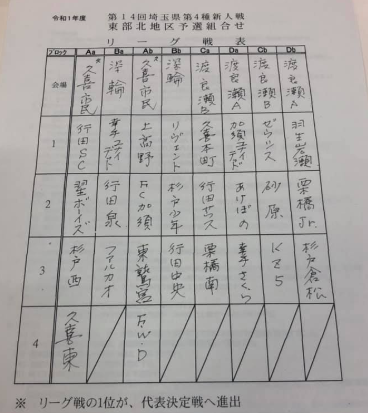 令和1年度 第14回埼玉県第4種新人戦
東部北地区予選組合せ
リーグ戦表
ブロック Aa Ba Ab Bb Ca Da Cb Db
会場 久喜市民 深輪 久喜市民 深輪 渡良瀬B 渡良瀬A 渡良瀬B 渡良瀬A
1 行田SC 幸手ユナイテッド 上高野 リヴェント 久喜本町 加須ユナイテッド ゼウシス 羽生岩瀬
2 翌ボーイズ 行田泉 FC加須 杉戸少年 行田サウス あけぼの 砂原 栗橋Jr.
3 杉戸西 ファルカオ 東鷲宮 行田中央 栗橋南 幸手さくら K25 杉戸倉松
4 久喜東 FW・D
※ リーグ戦の1位が、代表決定戦へ進出